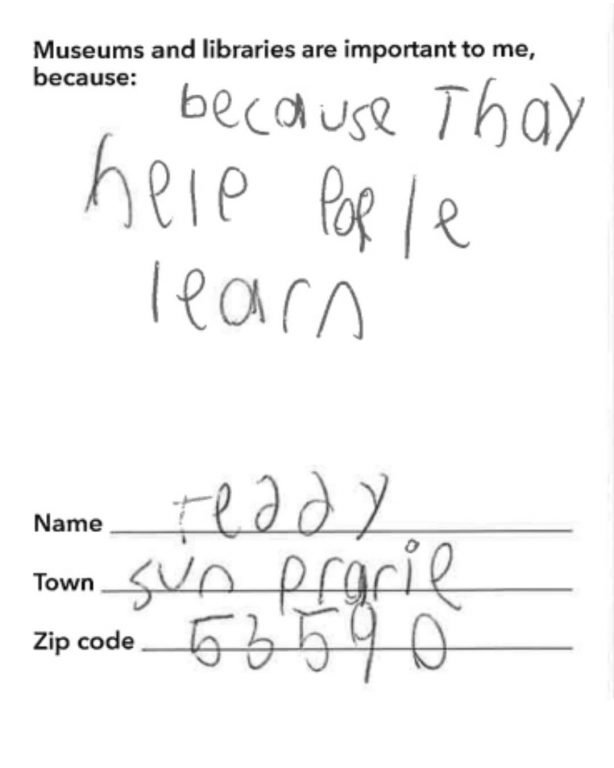 Museums and libraries are important to me,
because:
because Thay
help Pople
learn
Name teddy
Town sun prarie
Zip code 53590